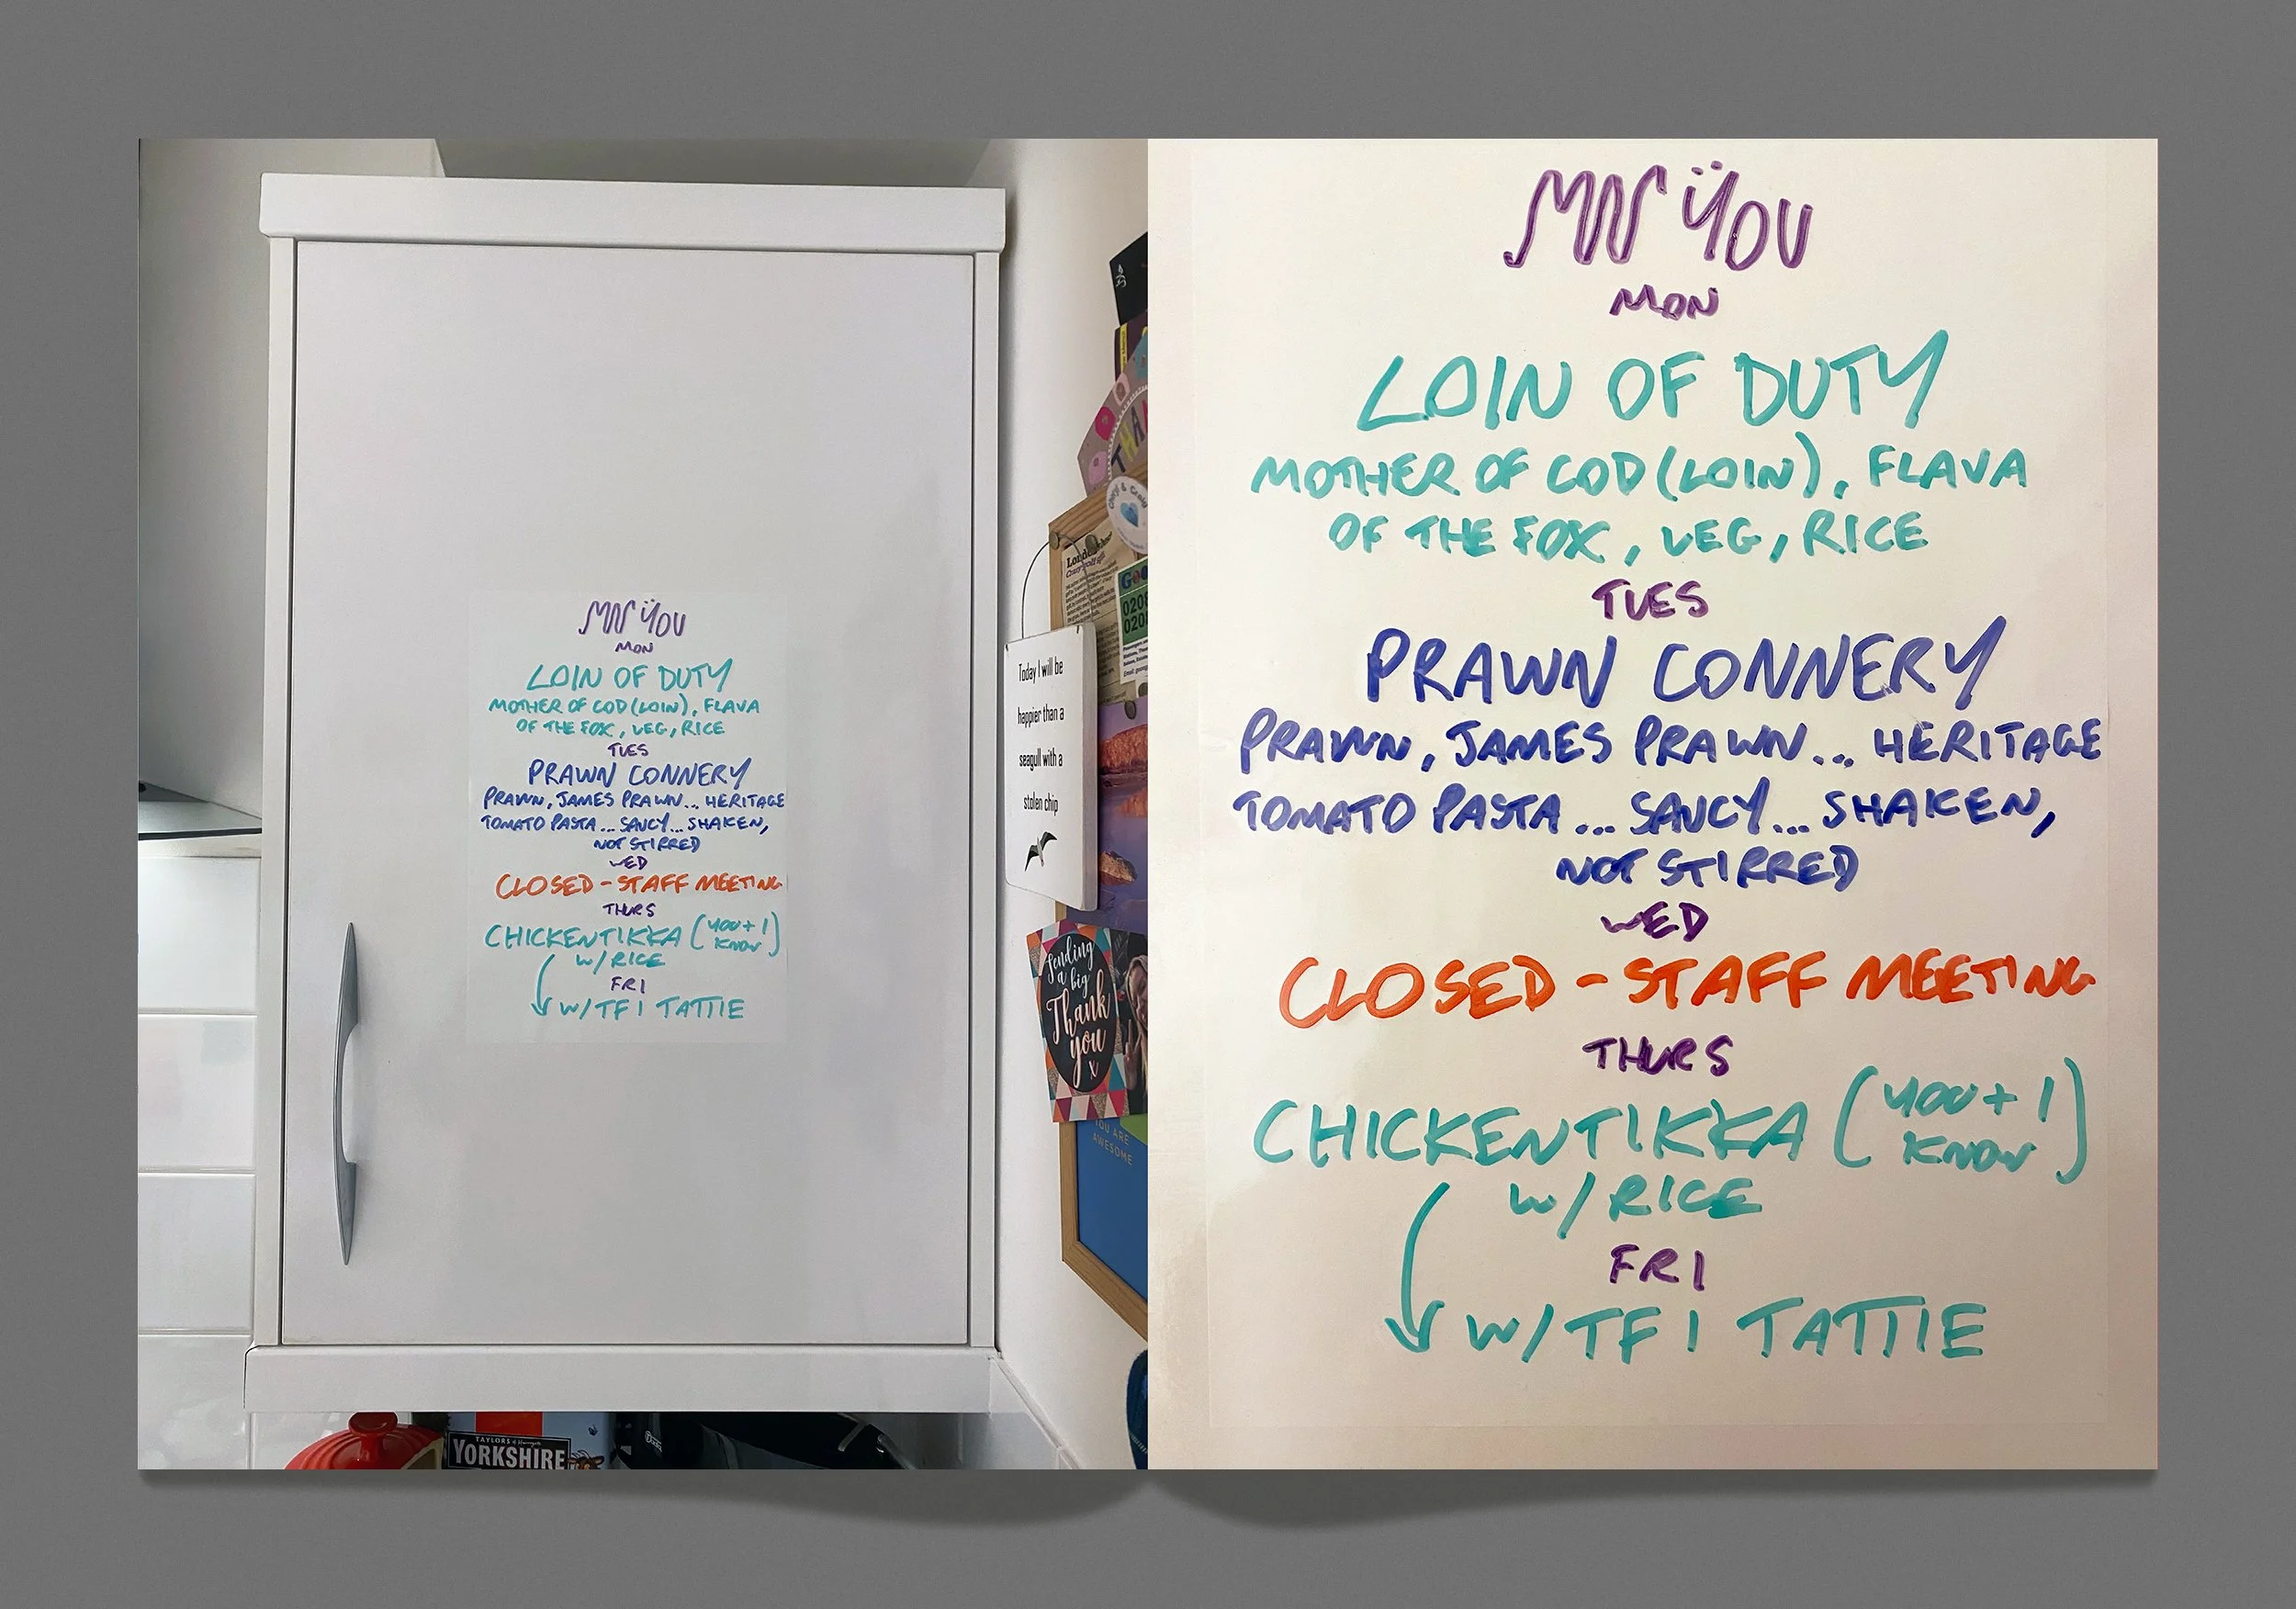 MN ÿOU
MON
LOIN OF DUTY
MOTHER OF COD (LOIN), FLAVA
OF THE FOX, VEG, RICE
TUES
PRAWN CONNERY
PRAWN, JAMES PRAWN... HERITAGE
TOMATO PASTA... SAUCY... SHAKEN,
NOT STIRRED
WED
CLOSED - STAFF MEETING
THURS
CHICKEN TIKKA (YOU + I
KNOW)
W/ RICE
FRI
W/ TFI TATTIE
Today I will be
happier than a
seagull with a
stolen chip
Sending
a big
Thank
you
x
YOU ARE
AWESOME
TAYLORS of Harrogate
YORKSHIRE
MN ÿOU
MON
LOIN OF DUTY
MOTHER OF COD (LOIN), FLAVA
OF THE FOX, VEG, RICE
TUES
PRAWN CONNERY
PRAWN, JAMES PRAWN... HERITAGE
TOMATO PASTA... SAUCY... SHAKEN,
NOT STIRRED
WED
CLOSED - STAFF MEETING
THURS
CHICKEN TIKKA (YOU + I
KNOW)
W/ RICE
FRI
W/ TFI TATTIE